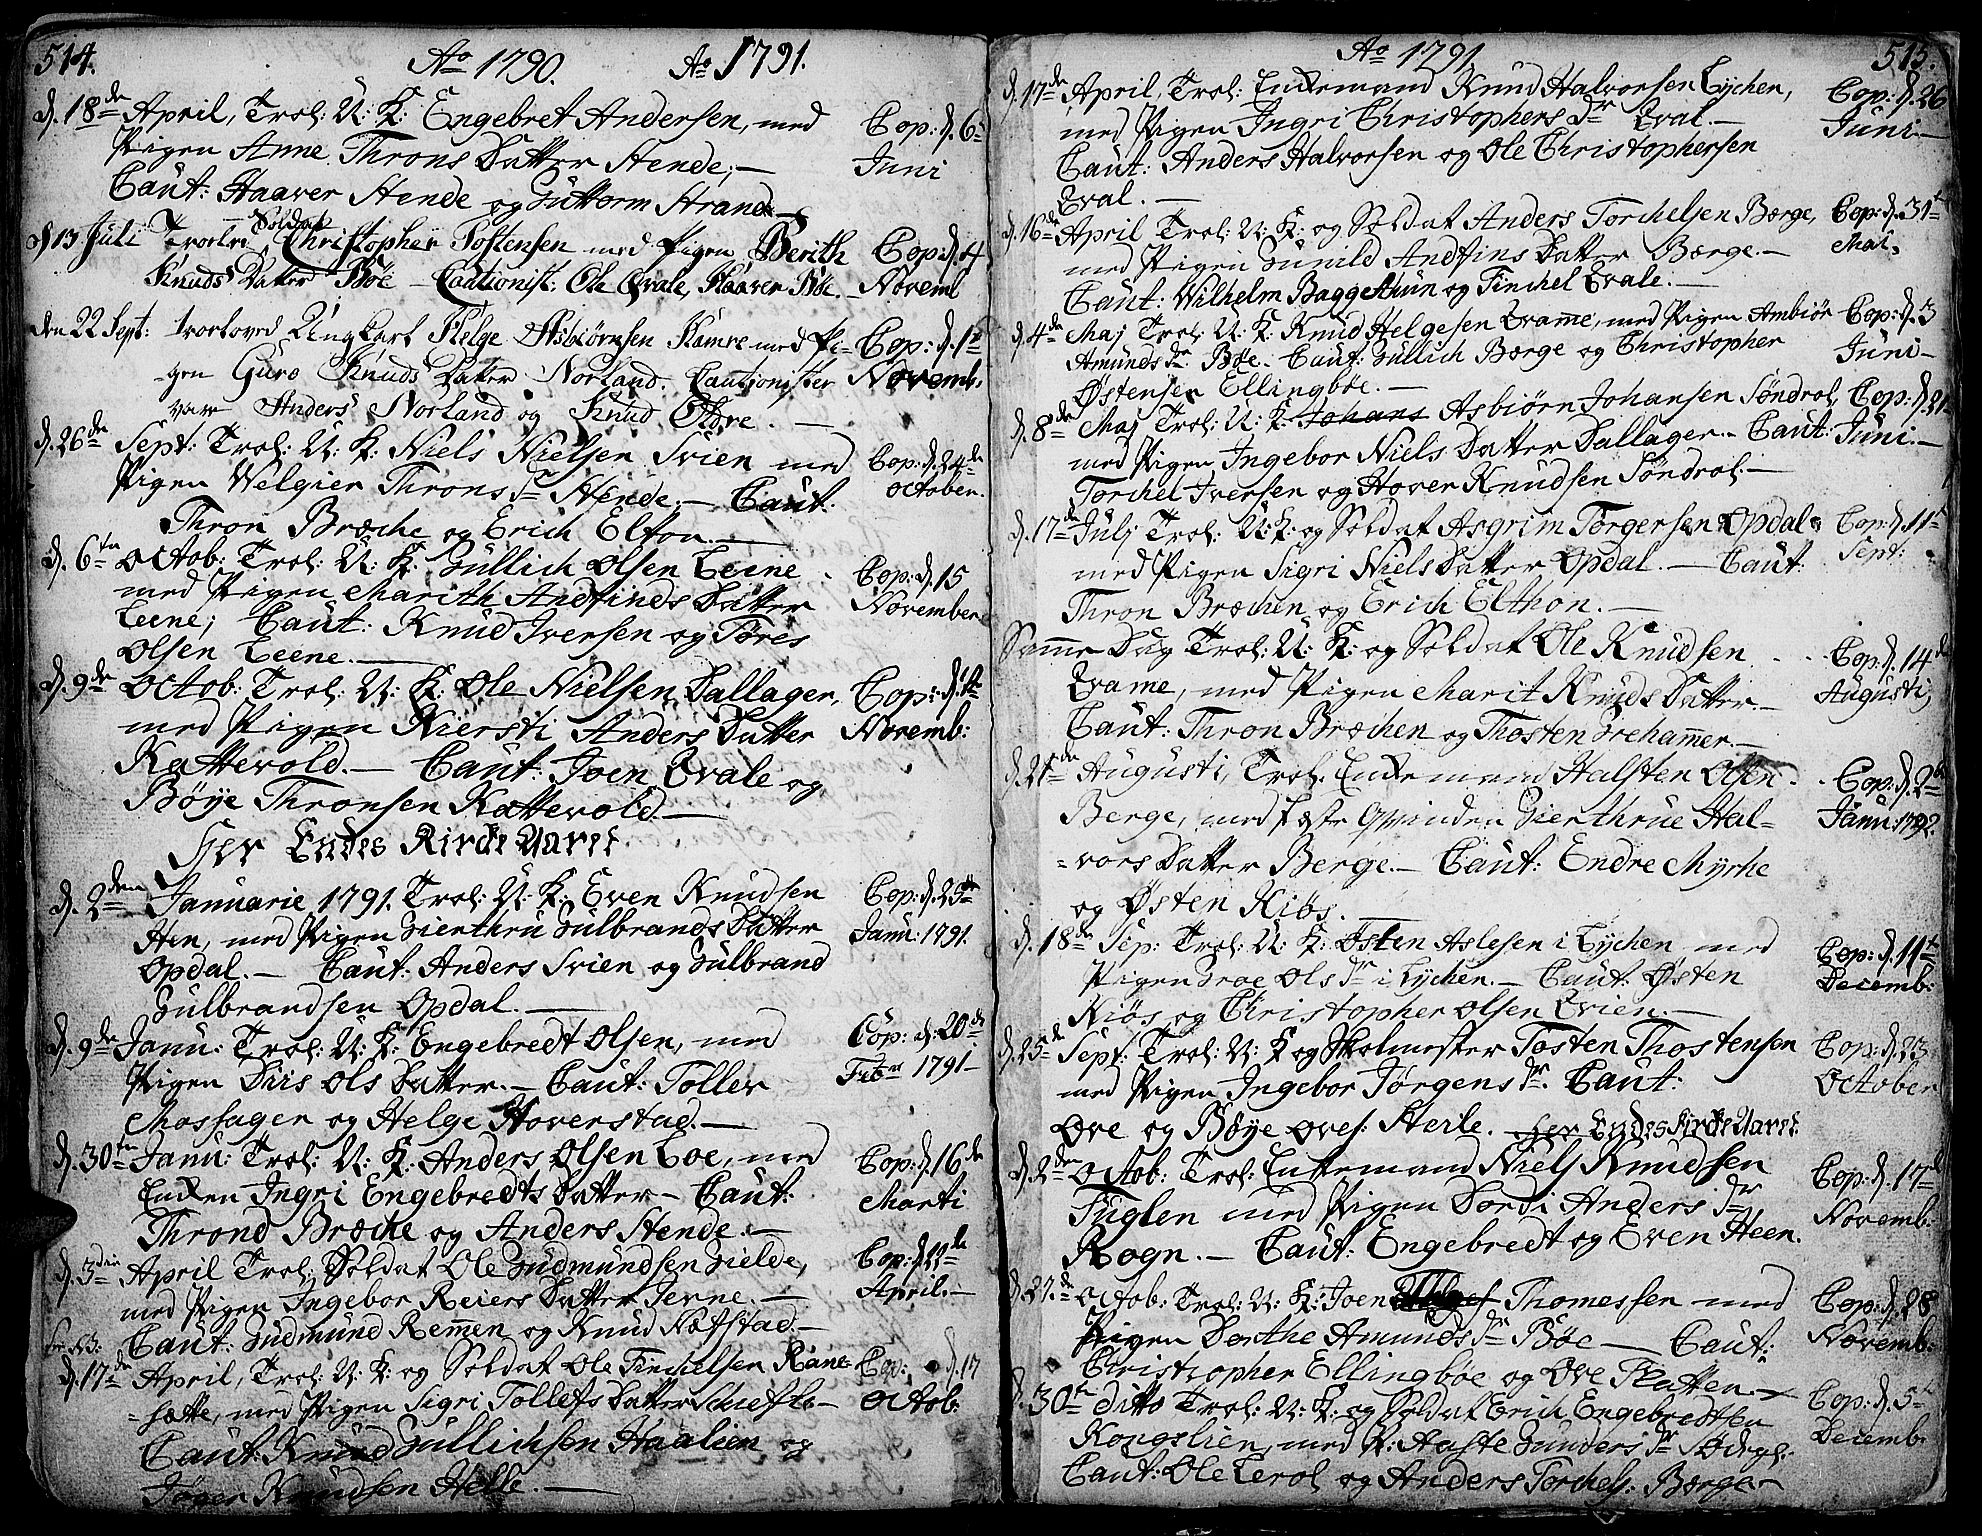 514.
Ao 1790. Ao 1791.
d. 18de April, Trol: U: K: Engebret Andersen, med Cop: d. 6te
Pigen Anne Throns Datter Hende; — Juni
Caut: Haaver Hende og Guttorm Strand —
d 13 Juli Trolov: Soldat Christopher Tostensen med Pigen Berith Cop: d. 4
Knuds Datter Bøe — Cautionist: Ole Qvale, Haaver Bøe. — Noveml
den 22 Sept: troloved Ungkarl Helge Asbiörnsen Hamre med Pi- Cop: d. 1te
gen Guro Knuds Datter Norland. Cautionister Novemb:
var Anders Norland og Knud Oldre. —
d. 26de Sept: Trol: U: K: Niels Nielsen Svien med Cop: d. 24de
Pigen Welgier Throns Dr Hende. — Caut: October.
Thron Bræche og Erich Elton. —
d. 6te Octob: Trol: U: K: Gullich Olsen Leene Cop: d. 15
med Pigen Marith Andfinds Datter November
Leene; Caut: Knud Iversen og Töres
Olsen Leene. —
d. 9de Octob: Trol: U: K: Ole Nielsen Dallager, Cop: d. 1te
med Pigen Kiersti Anders Datter Novemb:
Kattevold. — Caut: Joen Qvale og
Böye Thronsen Kattevold. —
Her Endes Kirke Aaret
d. 2den Januarie 1791. Trol: U: K: Even Knudsen Cop: d. 25de
Hen, med Pigen Gierthru Gulbrands Datter Janu: 1791.
Opdal. — Caut: Anders Svien og Gulbrand
Gulbrandsen Opdal. —
d. 9de Janu: Trol: U: K: Engebredt Olsen, med Cop: d. 20de
Pigen Siris Ols Datter. — Caut: Tollev Febr 1791 —
Mossager og Helge Hoverstad. —
d. 30te Janu: Trol: U: K: Anders Olsen Loe, med Cop: d. 16de
Enken Ingri Engebredts Datter — Caut: Marti
Thrond Bræche og Anders Hende. —
d. 3die April Trol: Soldat Ole Gudmundsen Gielde, Cop: d. 22de
med Pigen Ingebor Reiers Datter Jerne. — April. —
Caut: Gudmund Remmen og Knud Næfstad —
d. 17de April, Trol: U: K: og Soldat Ole Finchelsen Rane- Cop: d. 17
sætte, med Pigen Sigri Tollefs Datter Schiefte — Octob:
Caut: Knud Gullichsen Haalien og
Jøger Knudsen Helle. —
515.
Ao 1791
d. 17de April, Trol: Enkemand Knud Halvorsen Lychen, Cop: d. 26
med Pigen Ingri Christophers Dr Qval. — Juni. —
Caut: Anders Halvorsen og Ole Christophersen
Qval. —
d. 16de April Trol: U: K: og Soldat Anders Torchelsen Børge, Cop: d. 31te
med Pigen Gunild Andfins Datter Børge. — Mai.
Caut: Wilhelm Baggethun og Finchel Qvale. —
d. 4de Maj Trol: U: K: Knud Helgesen Qvamme, med Pigen Ambiör Cop: d. 3
Amunds Dr Bøe. Caut: Gullich Børge og Christopher Juni —
Østensen Ellingbøe. —
d. 8de Maj Trol: U: K: Johans Asbiörn Johansen Söndrol, Cop: d. 21
med Pigen Ingebor Niels Datter Dallager. — Caut: Juni. —
Torchel Iversen og Hover Knudsen Söndrol. —
d. 17de Julj Trol: U: K: og Soldat Asgrim Torgersen Opdal Cop: d. 11te
med Pigen Sigri Niels Datter Opdal. — Caut: Sept:
Thron Bræchen og Erich Elthon. —
Samme Dag Trol: U: K: og Soldat Ole Knudsen Cop: d. 14de
Qvame, med Pigen Marit Knuds Datter. — Augusti,
Caut: Thron Bræchen og Thosten Grehamer. —
d. 21de Augusti, Trol: Enkemand Halsten Olsen Cop: d. 2de
Berge, med Fæste Qvinden Gierthrue Hal- Janu: 1792.
vors Datter Berge. — Caut: Endre Myrhe
og Østen Kiös. —
d. 18de Sep: Trol: U: K: Østen Aslesen i Lychen med Cop: d. 11te
Pigen Groe Ols Dr i Lychen. — Caut: Østen Decemb:
Kiös og Christopher Olsen Qvien. —
d. 25de Sept: Trol: U: K og Skolmester Tosten Thostensen Cop: d. 23
med Pigen Ingebor Jørgens Dr. Caut: October
Ove og Böye Oves: Herle. — Her Endes Kirke Aaret
d. 2den Octob: Trol: Enkemand Niels Knudsen Cop: d. 17de
Fuglen med Pigen Dordi Anders Dr Novemb:
Rogn. — Caut: Engebredt og Even Heen.
d. 27de Octob: Trol: U: K: Joen Thomessen med Cop: d. 28
Pigen Dorthe Amunds Dr Bøe — Caut: Novemb:
Christropher Ellingbøe og Ove Flatten. —
d. 30te ditto Trol: U: K: og Soldat Erich Engebredtsen Cop: d. 5te
Kongslien, med P: Aaste Gunders Dr Decemb:
Caut: Ole Lerol og Anders Torchels: Børge —